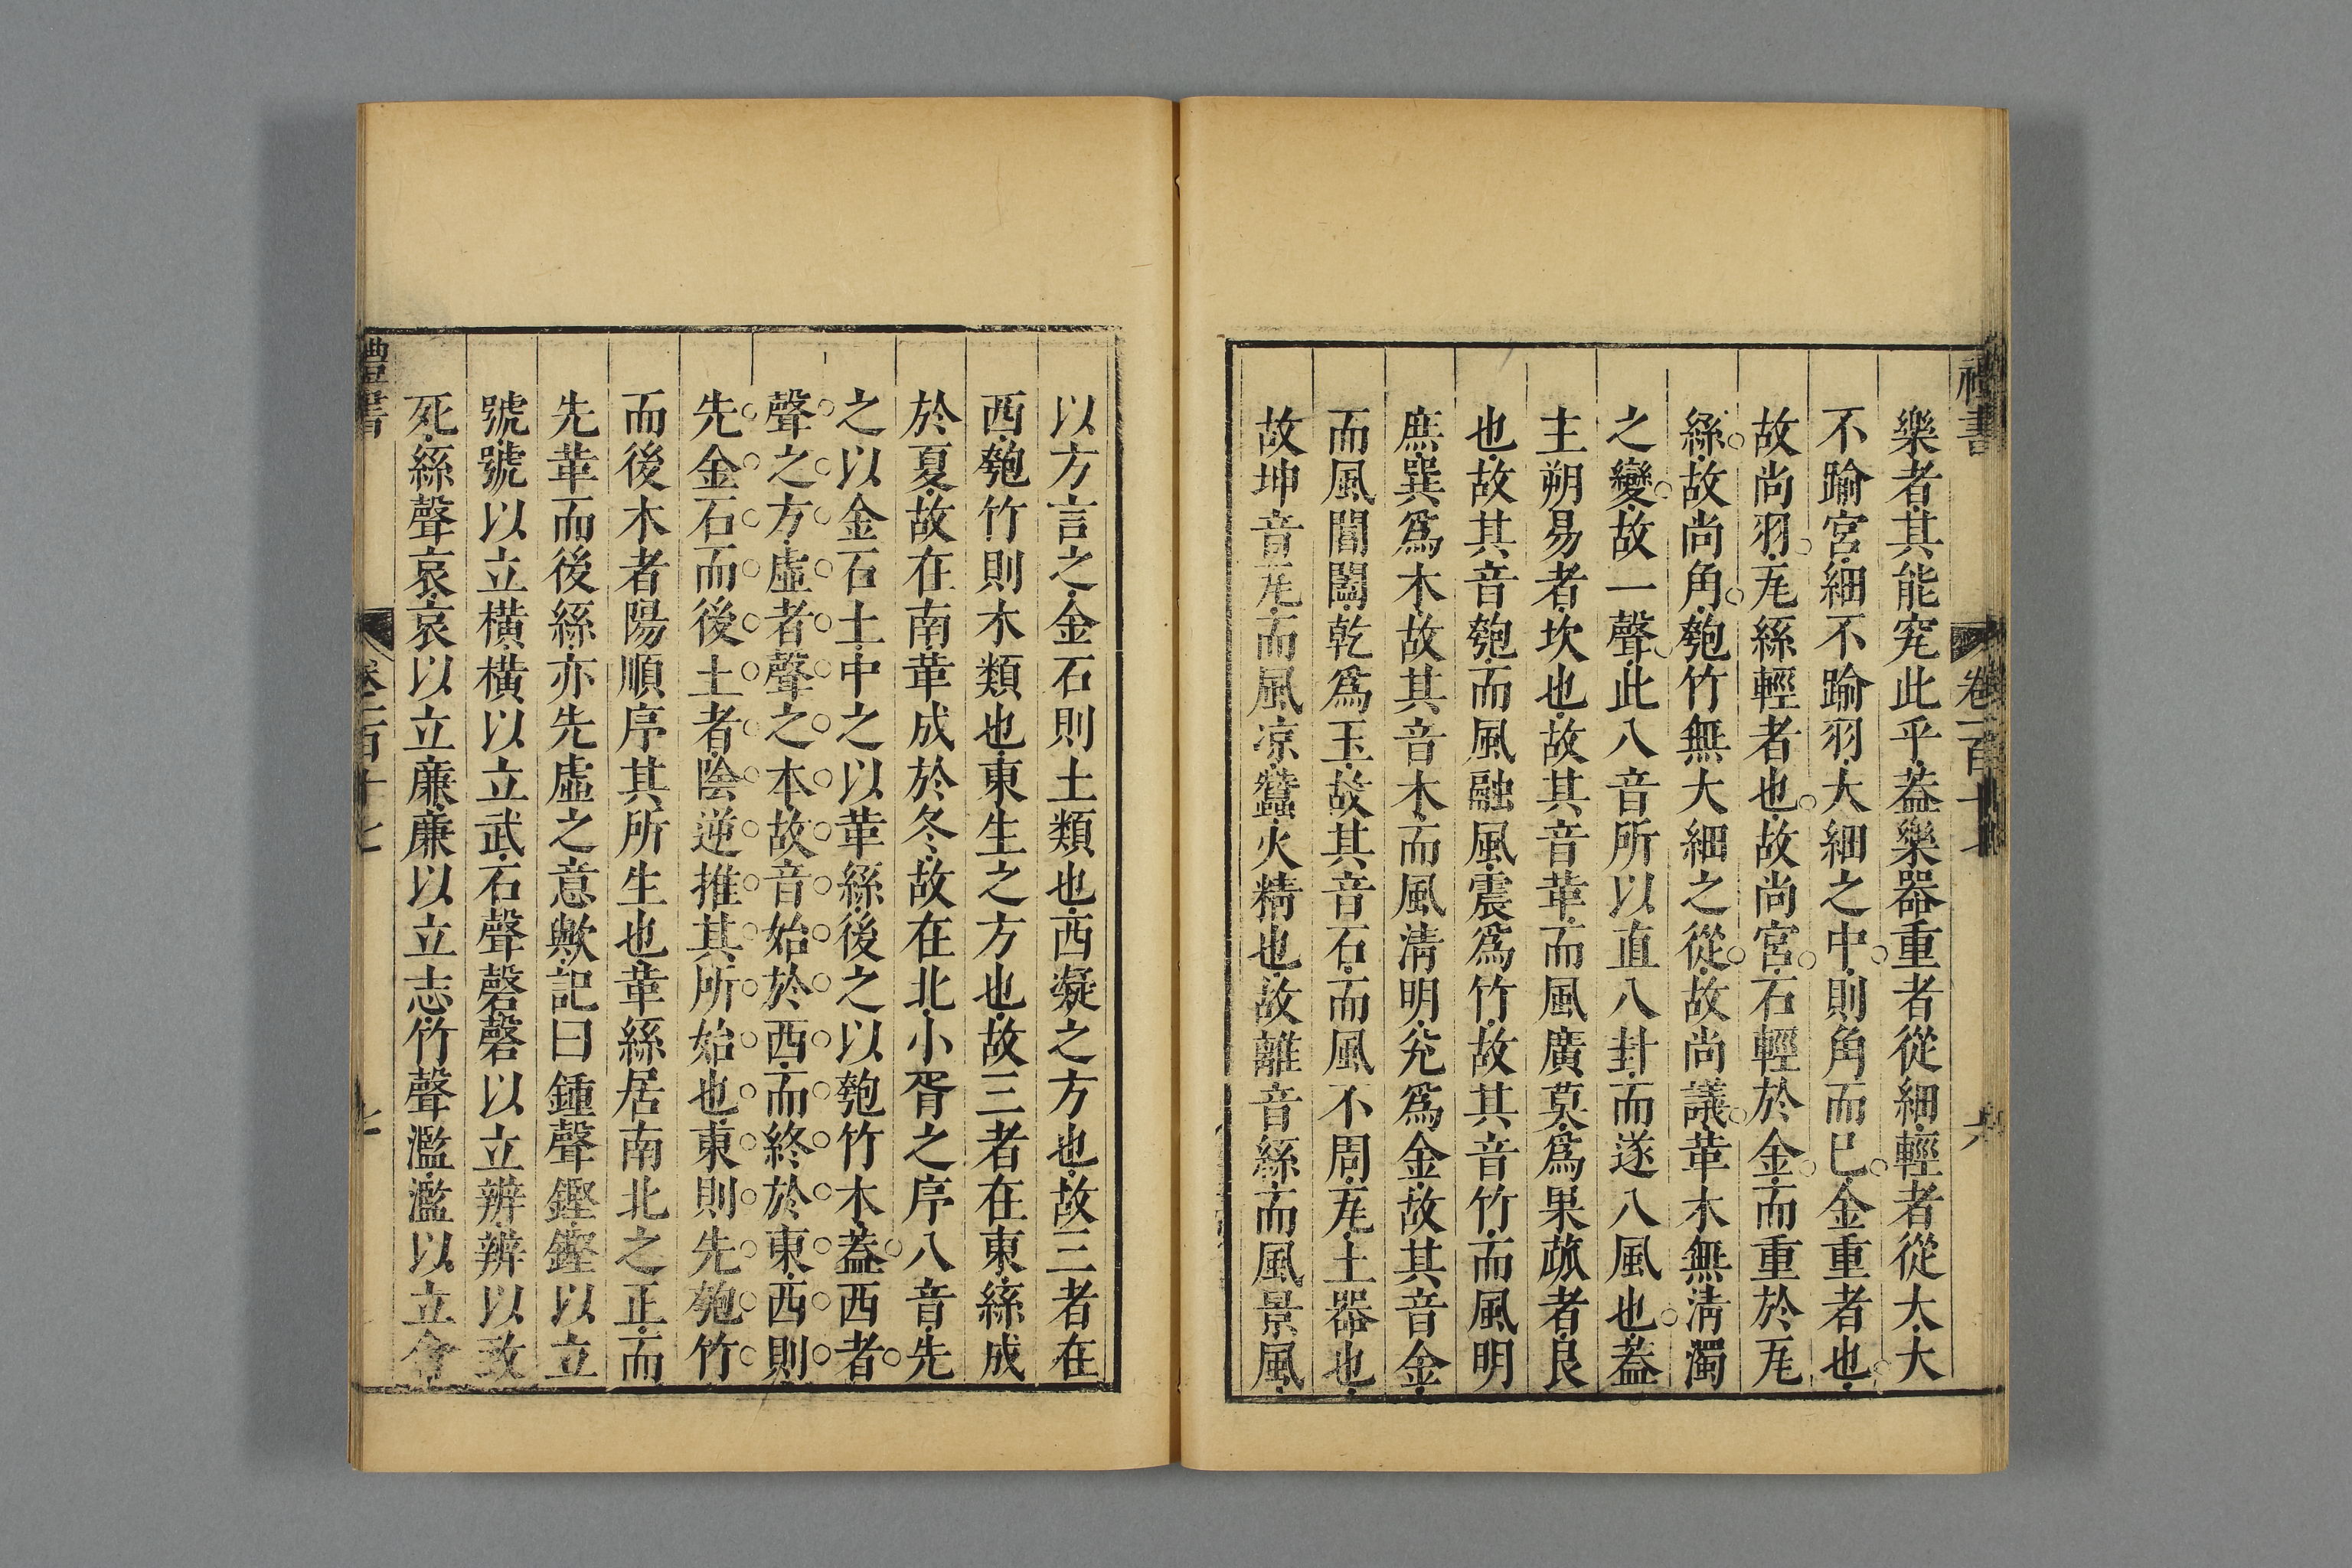 禮書 卷一百十七 六
樂者其能究此乎蓋樂器重者從細輕者從大大
不踰宮細不踰羽大細之中則角而已金重者也
故尚羽瓦絲輕者也故尚宮石輕於金而重於瓦
絲故尚角匏竹無大細之從故尚議革木無清濁
之變故一聲此八音所以直八卦而遂八風也蓋
主朔易者坎也故其音革而風廣莫爲果蓏者艮
也故其音匏而風融風震爲竹故其音竹而風明
庶巽爲木故其音木而風清明兌爲金故其音金
而風閶闔乾爲玉故其音石而風不周瓦土器也
故坤音瓦而風凉蠶火精也故離音絲而風景風
以方言之金石則土類也西凝之方也故三者在
西匏竹則木類也東生之方也故三者在東絲成
於夏故在南革成於冬故在北小胥之序八音先
之以金石土中之以革絲後之以匏竹木蓋西者
聲之方虛者聲之本故音始於西而終於東西則
先金石而後土者陰逆推其所始也東則先匏竹
而後木者陽順序其所生也革絲居南北之正而
先革而後絲亦先虛之意歟記曰鍾聲鏗鏗以立
號號以立橫橫以立武石聲磬磬以立辨辨以致
死絲聲哀哀以立廉廉以立志竹聲濫濫以立會
禮書 卷一百十七 七